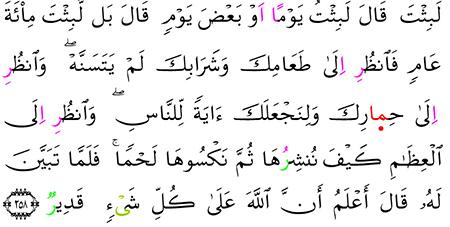 لَبِثْتَ قَالَ لَبِثْتُ يَوْمًا اَوْ بَعْضَ يَوْمٍ قَالَ بَل لَّبِثْتَ مِاْئَةَ
عَامٍ فَٱنظُرِ اِلَىٰ طَعَامِكَ وَشَرَابِكَ لَمْ يَتَسَنَّهْ ۖ وَٱنظُرِ
اِلَىٰ حِمارِكَ وَلِنَجْعَلَكَ ءَايَةً لِّلنَّاسِ ۖ وَٱنظُرِ اِلَى
ٱلْعِظَٰمِ كَيْفَ نُنشِرُهَا ثُمَّ نَكْسُوهَا لَحْمًا ۚ فَلَمَّا تَبَيَّنَ
لَهُۥ قَالَ أَعْلَمُ أَنَّ ٱللَّهَ عَلَىٰ كُلِّ شَىْءٍ قَدِيرٌ ٢٥٨